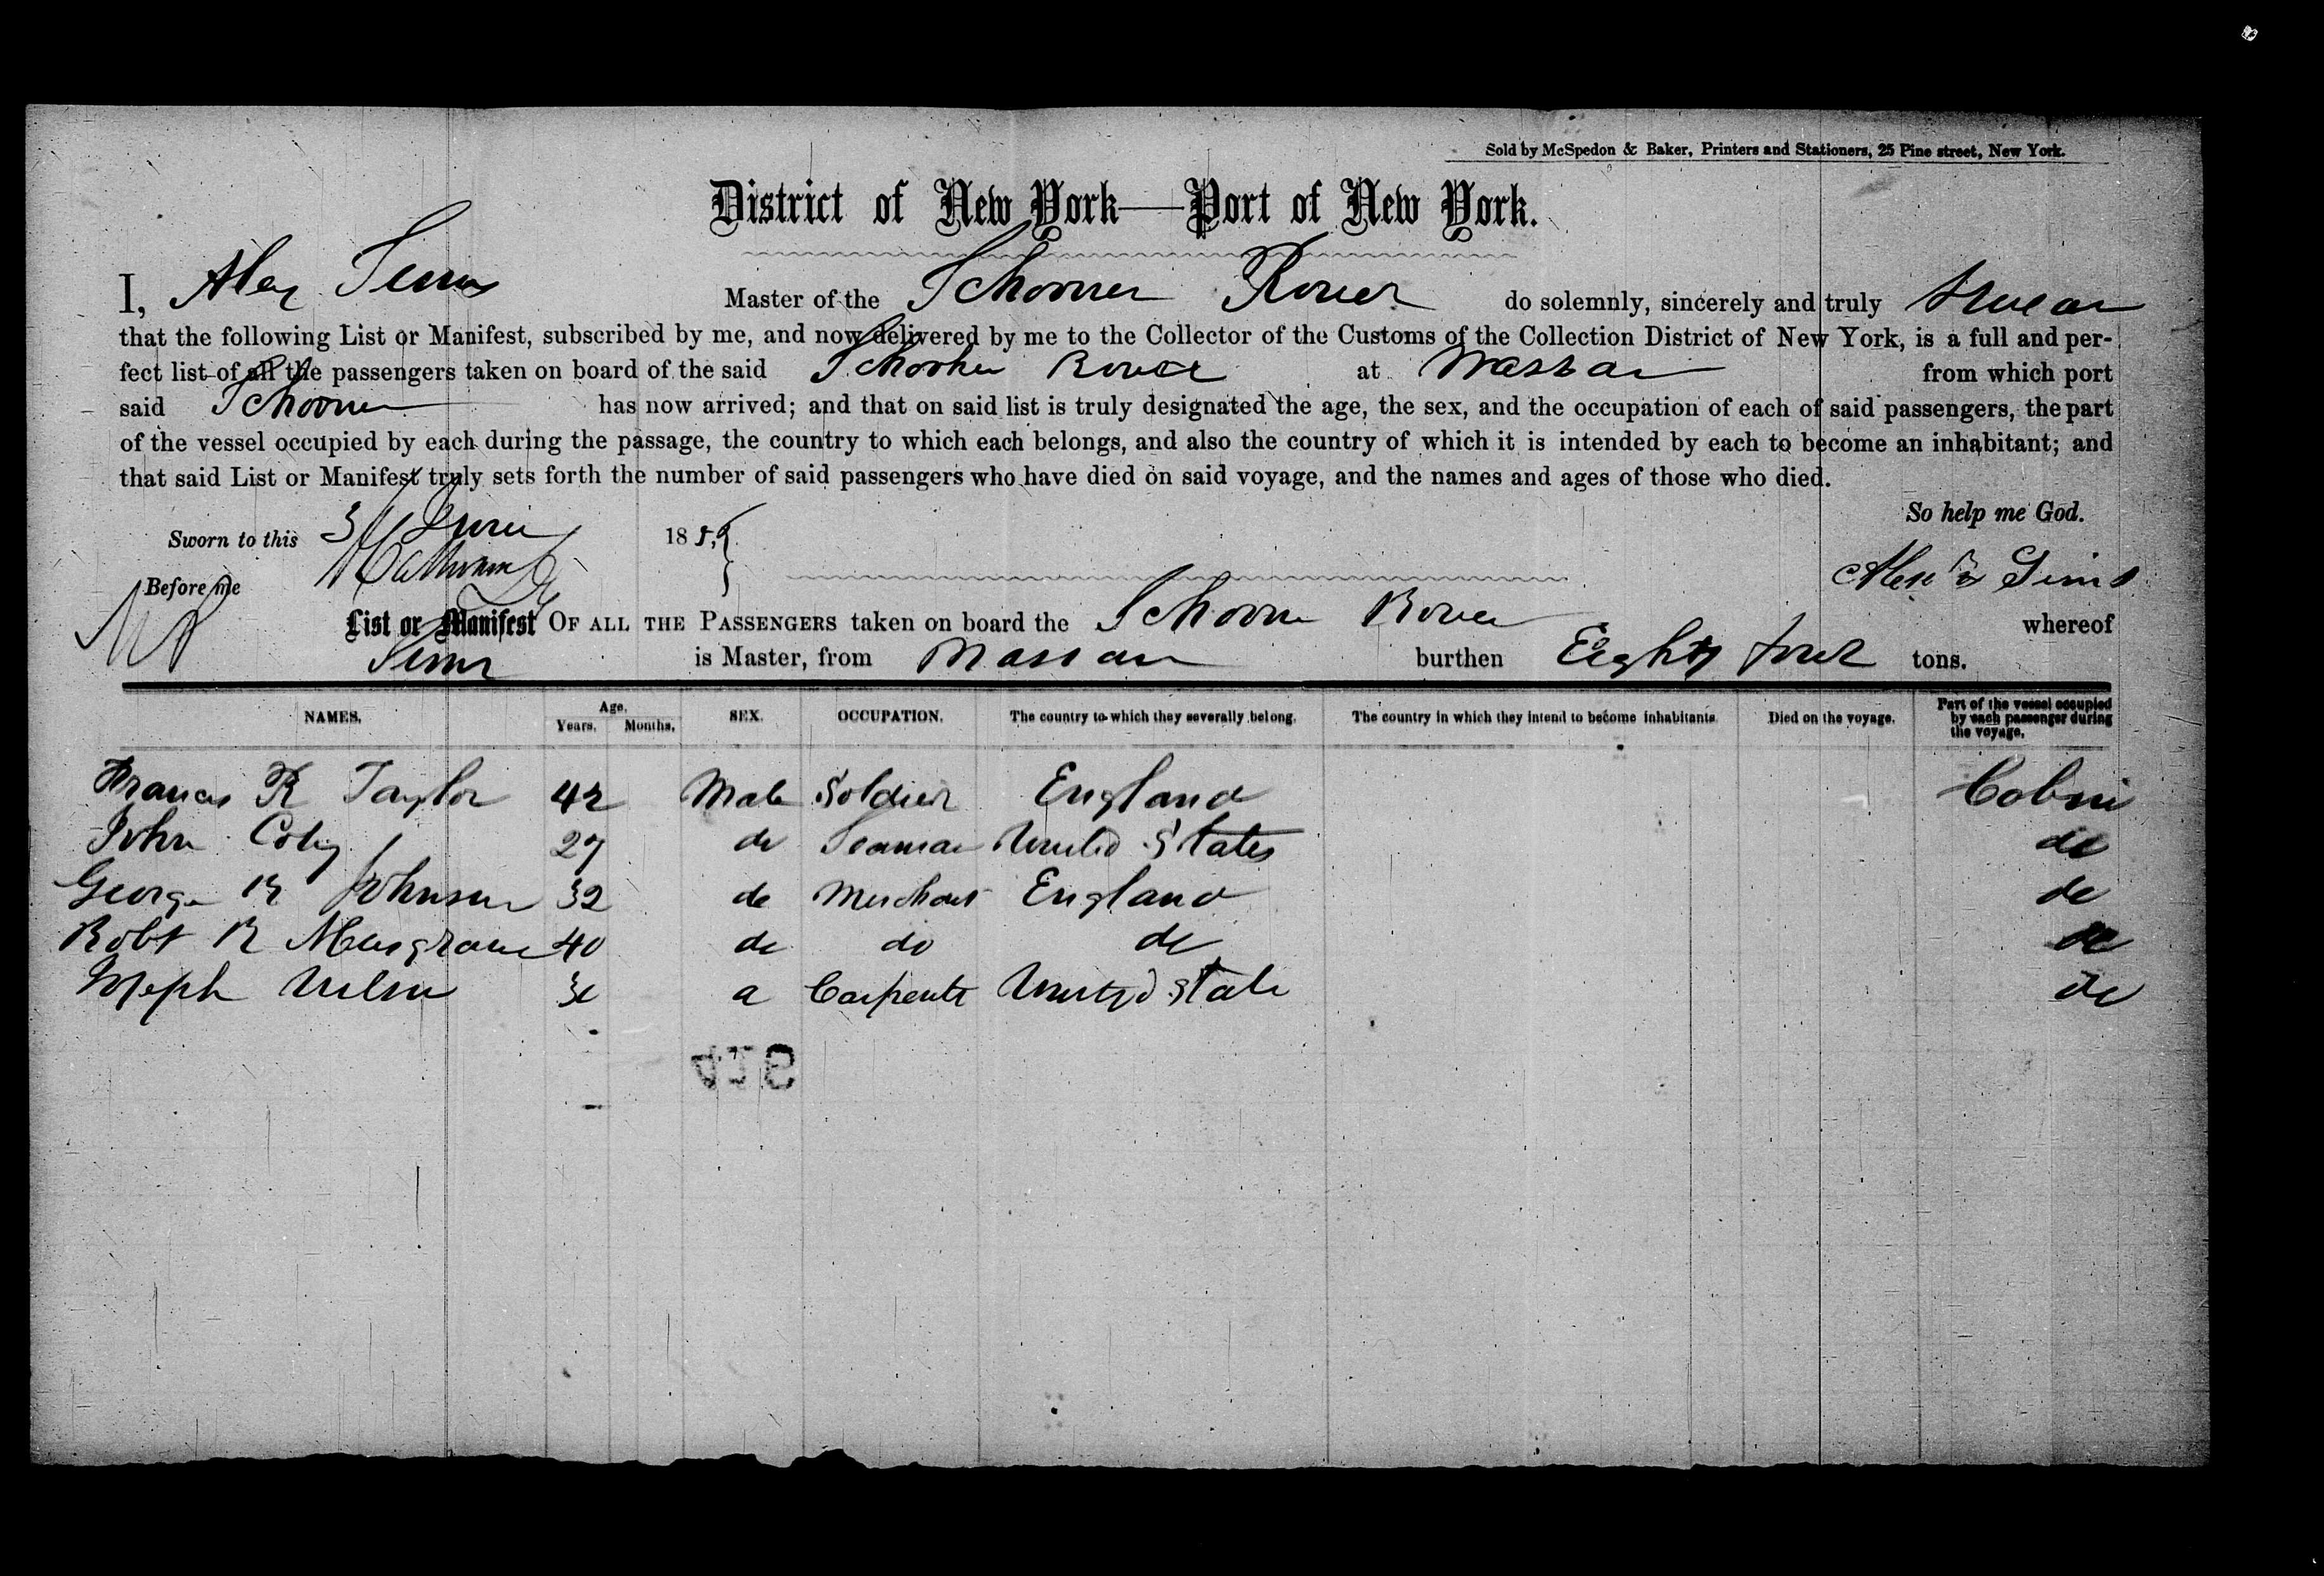 Sold by McSpedon & Baker, Printers and Stationers, 25 Pine street, New York.
District of New York—Port of New York.
I, Alex Sims Master of the Schooner Rover do solemnly, sincerely and truly Swear
that the following List or Manifest, subscribed by me, and now delivered by me to the Collector of the Customs of the Collection District of New York, is a full and per-
fect list of all the passengers taken on board of the said Schooner Rover at Nassau from which port
said Schooner has now arrived; and that on said list is truly designated the age, the sex, and the occupation of each of said passengers, the part
of the vessel occupied by each during the passage, the country to which each belongs, and also the country of which it is intended by each to become an inhabitant; and
that said List or Manifest truly sets forth the number of said passengers who have died on said voyage, and the names and ages of those who died.
So help me God.
Sworn to this June 185
Before me
Alexr Sims
List or Manifest OF ALL THE PASSENGERS taken on board the Schooner Rover whereof
Sims is Master, from Nassau burthen Eighty four tons.
NAMES. Age. Years. Months. SEX. OCCUPATION. The country to which they severally belong. The country in which they intend to become inhabitants. Died on the voyage. Part of the vessel occupied by each passenger during the voyage.
Francis R Taylor 42 Male Soldier England Cabin
John 27 do Seaman United States do
George R Johnson 32 do Merchant England do
Robt R Musgrave 40 do do do do
Joseph 30 Carpenter United State do